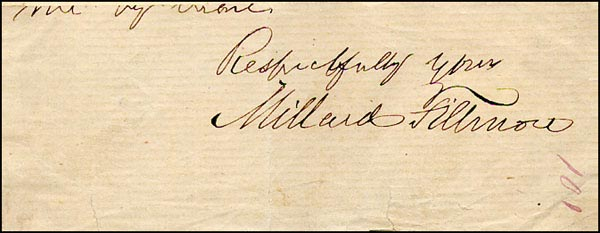 me by
Respectfully yours
Millard Fillmore
101